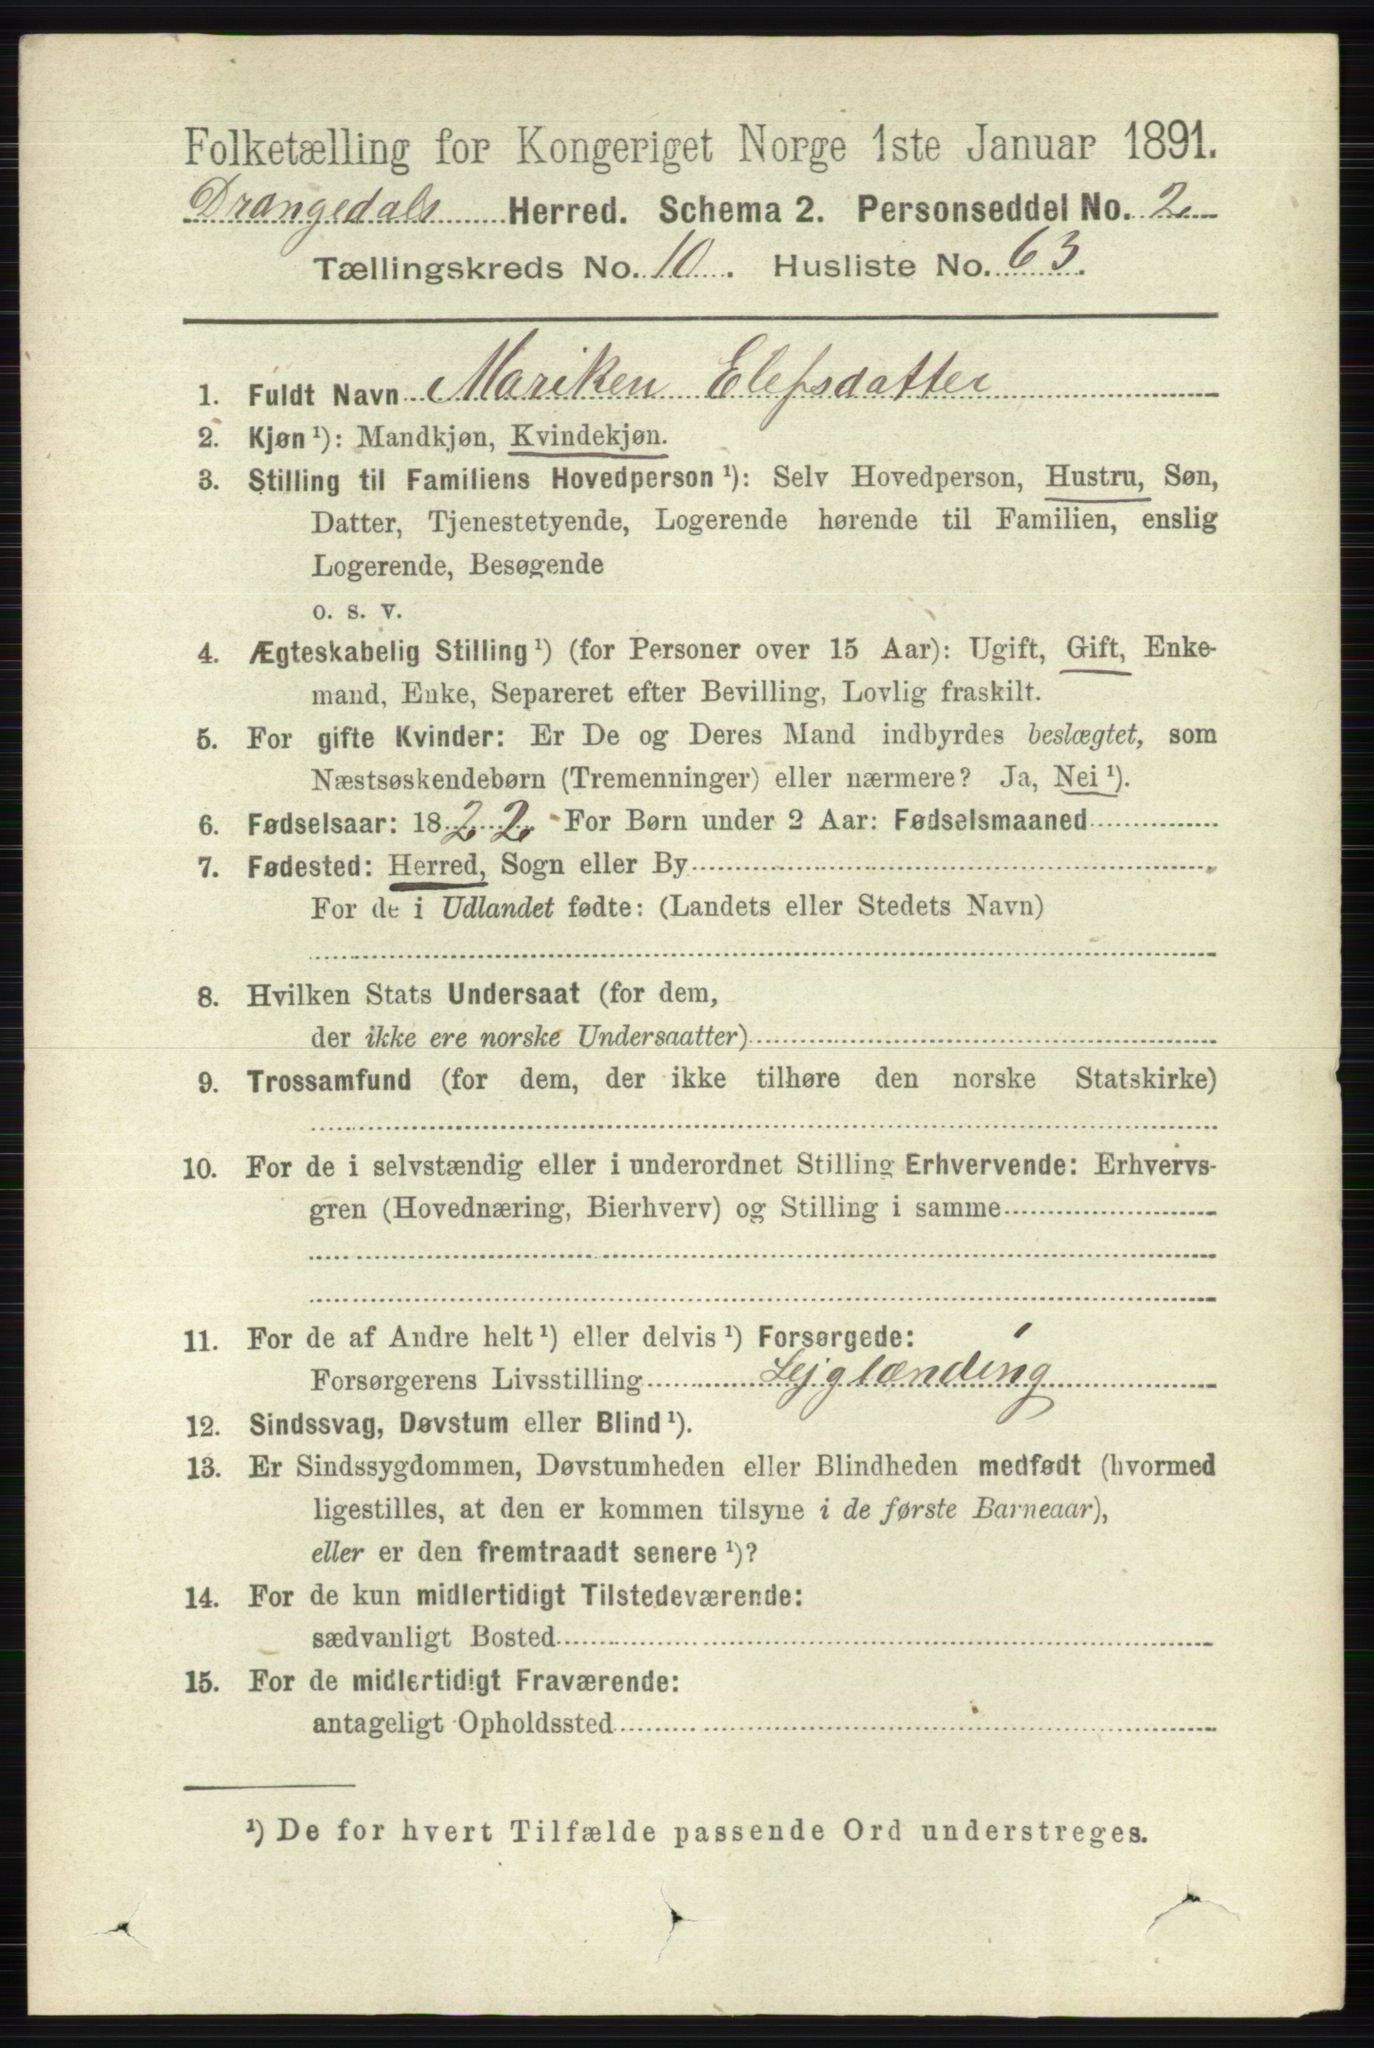 Folketælling for Kongeriget Norge 1ste Januar 1891.
Drangedals Herred. Schema 2. Personseddel No. 2
Tællingskreds No. 10. Husliste No. 63.
1. Fuldt Navn Mariken Elefsdatter
2. Kjøn¹): Mandkjøn, Kvindekjøn.
3. Stilling til Familiens Hovedperson¹): Selv Hovedperson, Hustru, Søn,
Datter, Tjenestetyende, Logerende hørende til Familien, enslig
Logerende, Besøgende
o. s. v.
4. Ægteskabelig Stilling¹) (for Personer over 15 Aar): Ugift, Gift, Enke-
mand, Enke, Separeret efter Bevilling, Lovlig fraskilt.
5. For gifte Kvinder: Er De og Deres Mand indbyrdes beslægtet, som
Næstsøskendebørn (Tremenninger) eller nærmere? Ja, Nei¹).
6. Fødselsaar: 1822. For Børn under 2 Aar: Fødselsmaaned
7. Fødested: Herred, Sogn eller By
For de i Udlandet fødte: (Landets eller Stedets Navn)
8. Hvilken Stats Undersaat (for dem,
der ikke ere norske Undersaatter)
9. Trossamfund (for dem, der ikke tilhøre den norske Statskirke)
10. For de i selvstændig eller i underordnet Stilling Erhvervende: Erhvervs-
gren (Hovednæring, Bierhverv) og Stilling i samme
11. For de af Andre helt¹) eller delvis¹) Forsørgede:
Forsørgerens Livsstilling Lejglænding
12. Sindssvag, Døvstum eller Blind¹).
13. Er Sindssygdommen, Døvstumheden eller Blindheden medfødt (hvormed
ligestilles, at den er kommen tilsyne i de første Barneaar),
eller er den fremtraadt senere¹)?
14. For de kun midlertidigt Tilstedeværende:
sædvanligt Bosted
15. For de midlertidigt Fraværende:
antageligt Opholdssted
¹) De for hvert Tilfælde passende Ord understreges.